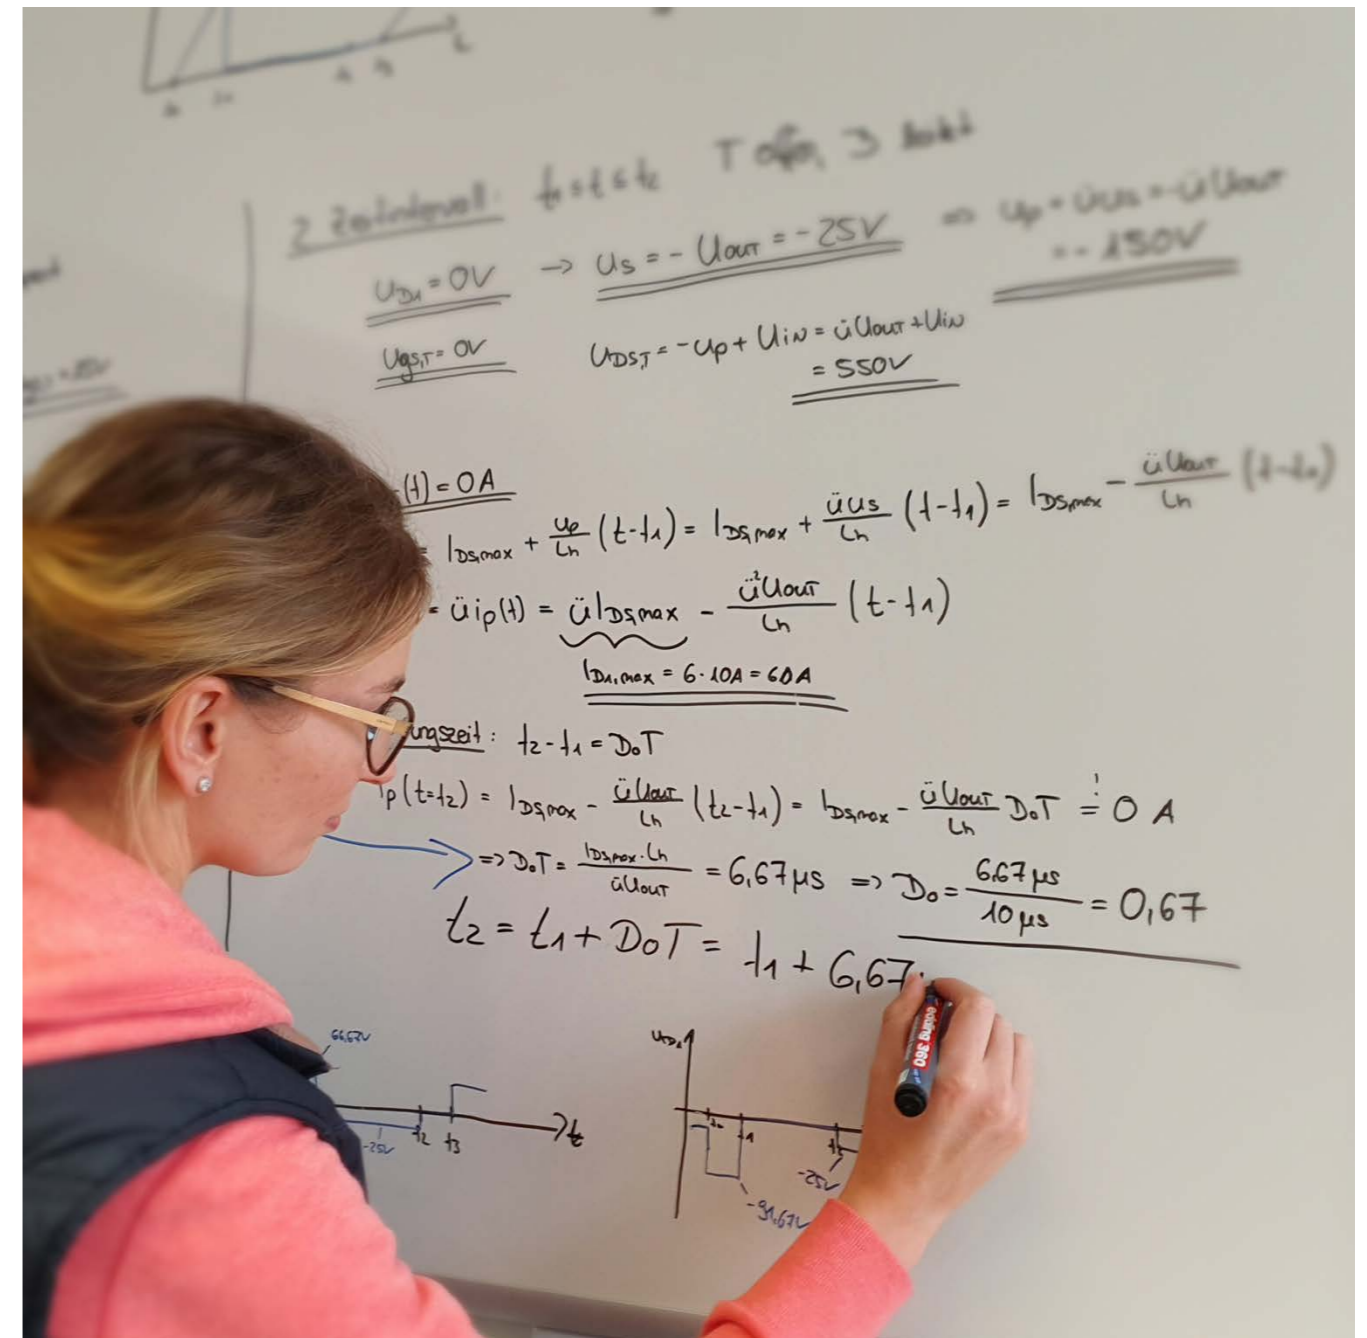 2 Zeitintervall: t₁ ≤ t ≤ t₂ T offen,
U_D1 = 0V → U_S = - U_OUT = -25V => U_P = ü U_S = -ü U_OUT
= -150V
U_gs,T = 0V U_DS,T = -U_P + U_IN = ü U_OUT + U_IN
= 550V
(t) = 0A
= I_DS,max + U_P/L_h (t-t₁) = I_DS,max + ü U_S/L_h (t-t₁) = I_DS,max - ü U_OUT/L_h (t-t₁)
= ü i_P(t) = ü I_DS,max - ü² U_OUT/L_h (t-t₁)
I_D1,max = 6·10A = 60A
ungszeit: t₂-t₁ = D₀T
i_P(t=t₂) = I_DS,max - ü U_OUT/L_h (t₂-t₁) = I_DS,max - ü U_OUT/L_h D₀T =! 0 A
=> D₀T = I_DS,max · L_h / ü U_OUT = 6,67 µs => D₀ = 6.67 µs / 10 µs = 0,67
t₂ = t₁ + D₀T = t₁ + 6,67
66,67V
-25V t₂ t₃ t
U_D1
t₁ t₂
-25V
-91,67V
edding 360